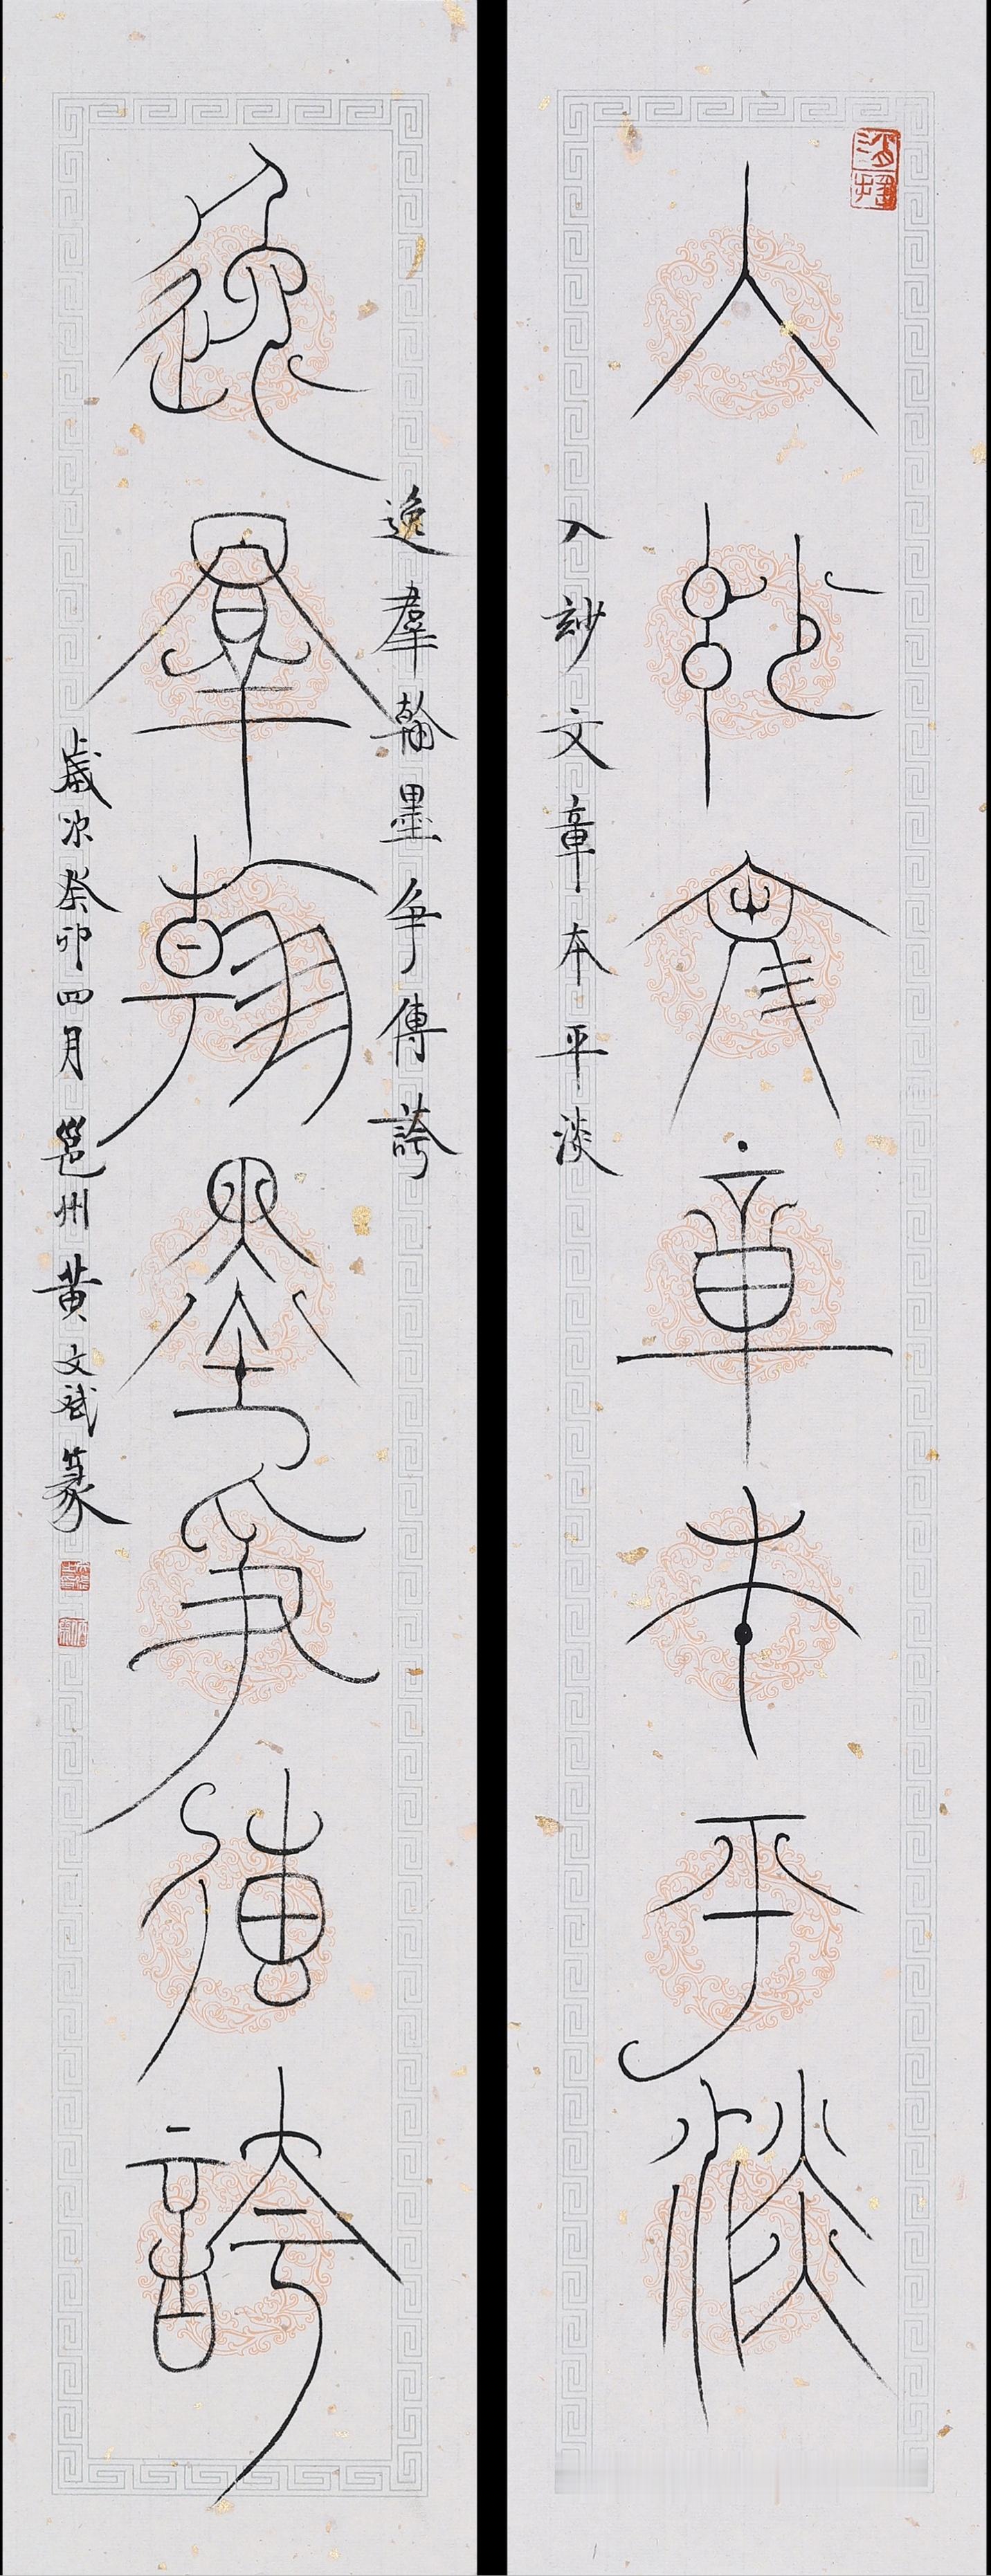 入玅文章本平淡
入玅文章本平淡
逸羣翰墨争傳誇
逸羣翰墨争傳誇
歲次癸卯四月邕州黄文斌篆